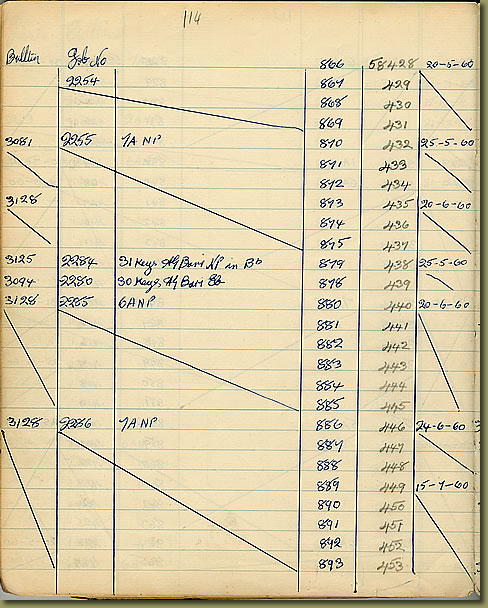 114
Bulltin Job No 866 58428 20-5-60
2254 867 429
868 430
869 431
3081 2255 7A NP 870 432 25-5-60
871 433
872 434
3128 873 435 20-6-60
874 436
875 437
3125 2284 31 Keys Bari NP in Bb 879 438 25-5-60
3094 2280 30 Keys Bari 878 439
3128 2285 6A NP 880 440 20-6-60
881 441
882 442
883 443
884 444
885 445
3128 2286 7A NP 886 446 24-6-60
887 447
888 448
889 449 15-7-60
890 450
891 451
892 452
893 453